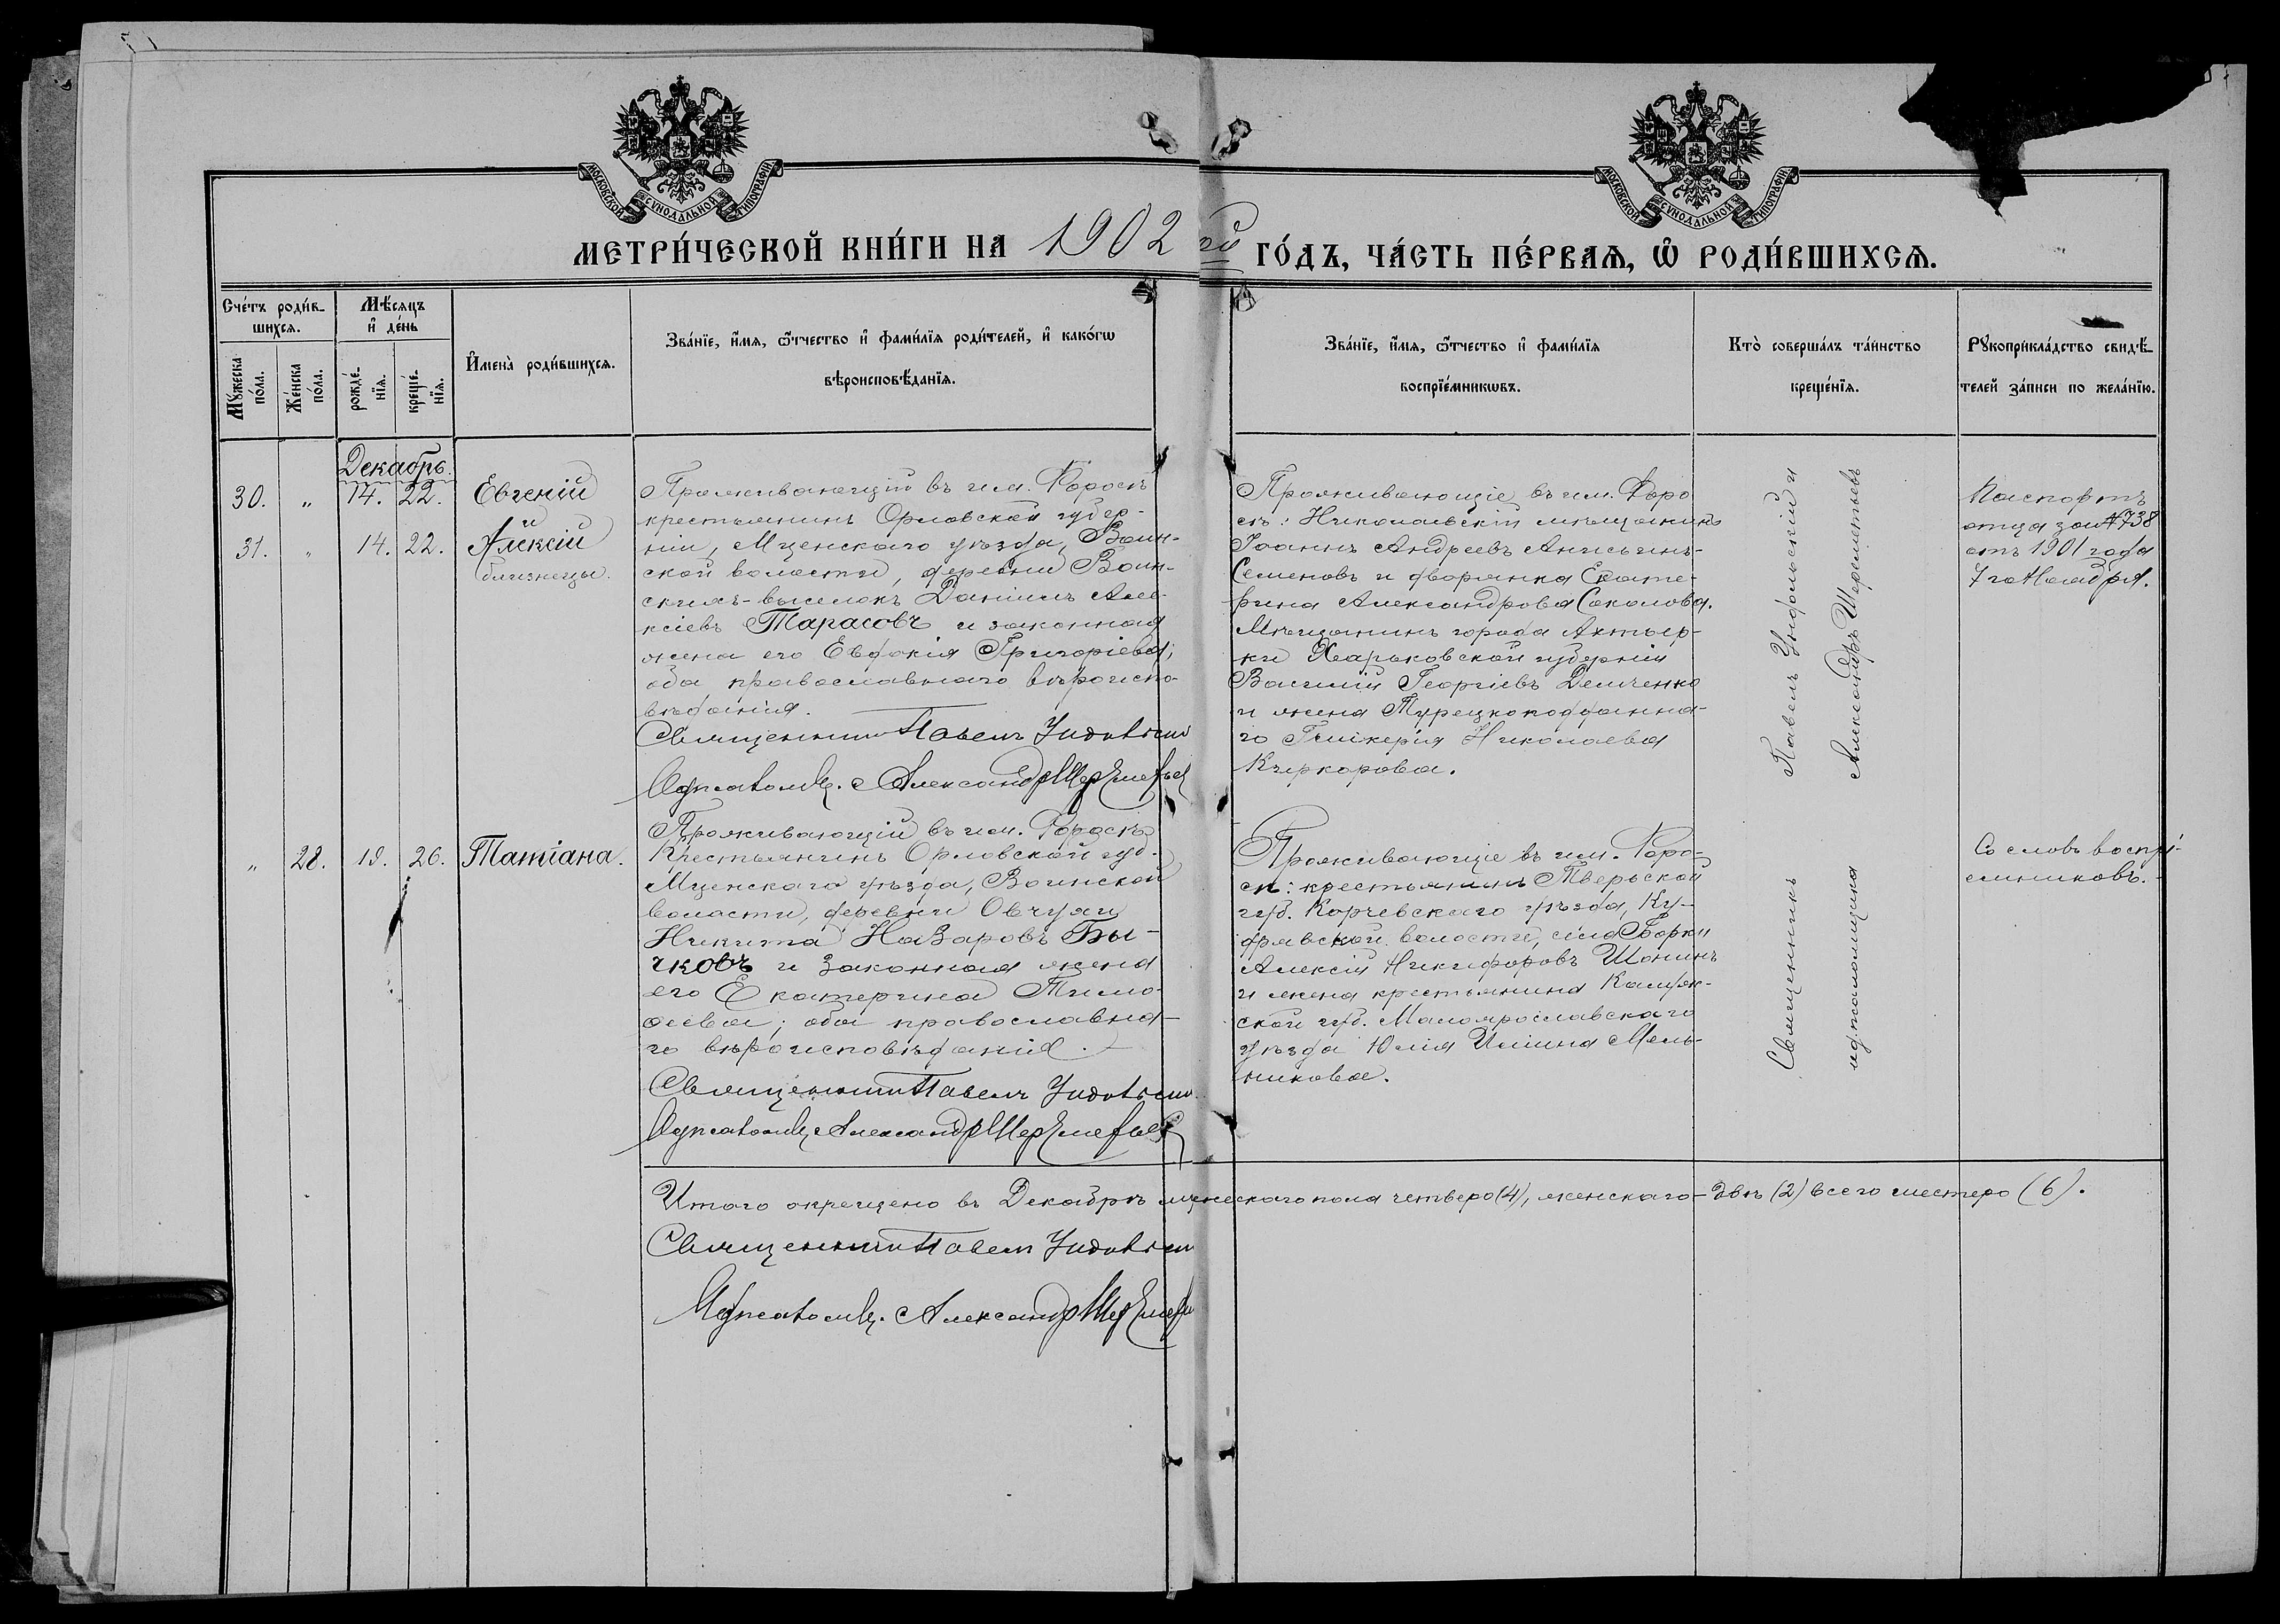 МОСКОВСКОЙ СѴНОДАЛЬНОЙ ТИПОГРАФІИ
МОСКОВСКОЙ СѴНОДАЛЬНОЙ ТИПОГРАФІИ
МЕТРИ́ЧЕСКОЙ КНИ́ГИ НА 1902 го́ ГО́ДЪ, ЧА́СТЬ ПЕ́РВАѦ, Ѡ҆ РОДИ́ВШИХСѦ.
Сче́тъ роди́в-
шихсѧ.
Мꙋ́жеска по́ла.
Же́нска по́ла.
Мѣ́сѧцъ
и҆ де́нь
рожде́-
нїѧ.
креще́-
нїѧ.
И҆мена̀ роди́вшихсѧ.
Зва́нїе, и҆́мѧ, ѻ҆́тчество и҆ фами́лїѧ роди́телей, и҆ како́гѡ
вѣроисповѣ́данїѧ.
Зва́нїе, и҆́мѧ, ѻ҆́тчество и҆ фами́лїѧ
воспрїе́мникѡвъ.
Кто̀ соверша́лъ та́инство
креще́нїѧ.
Рꙋкоприкла́дство свидѣ́-
телей за́писи по жела́нїю.
Декабрь.
30. „ 14. 22. Евгеній
31. „ 14. 22. Алексій
близнецы.
Проживающій въ им. Форосъ
крестьянинъ Орловской губер-
ніи, Мценскаго уѣзда, Воин-
ской волости, деревни Воин-
скихъ-выселокъ Даніилъ Але-
ксіевъ Тарасовъ и законная
жена его Евдокія Григоріева;
оба православнаго вѣроиспо-
вѣданія.
Священникъ Павелъ Ундольскій
И.д.псаломщ. Александръ Шереметьевъ
Проживающіе въ им. Форо
съ: Николаевскій мѣщанинъ
Іоаннъ Андреевъ Анисьинъ-
Семеновъ и дворянка Екате-
рина Александрова Соколова.
Мѣщанинъ города Ахтыр-
ки Харьковской губерніи
Василій Георгіевъ Демченко
и жена Турецкоподданна-
го Гликерія Николаева
Киркорова.
Священникъ Павелъ Ундольскій и
и.д.псаломщика Александръ Шереметьевъ
Паспортъ
отца за №738
отъ 1901 года
7го Ноября.
„ 28. 19. 26. Татіана.
Проживающій въ им. Форосъ
Крестьянинъ Орловской губ.
Мценскаго уѣзда, Воинской
волости, деревни Овчухи
Никита Назаровъ Бы-
чковъ и законная жена
его Екатерина Тимо-
ѳеева; оба православна-
го вѣроисповѣданія.
Священникъ Павелъ Ундольскій
И.д.псаломщ. Александръ Шереметьевъ
Проживающіе въ им. Форо-
съ: крестьянинъ Тверьской
губ. Корчевскаго уѣзда, Ку-
дрявской волости, села Борки
Алексій Никифоровъ Шонинъ
и жена крестьянина Калуж-
ской губ. Малоярославскаго
уѣзда Юлія Ильина Мель-
никова.
Со словъ воспрі-
емниковъ.
Итого окрещено въ Декабрѣ мужескаго пола четверо (4), женскаго - двѣ (2) всего шестеро (6).
Священникъ Павелъ Ундольскій
И.д.псаломщ. Александръ Шереметьевъ